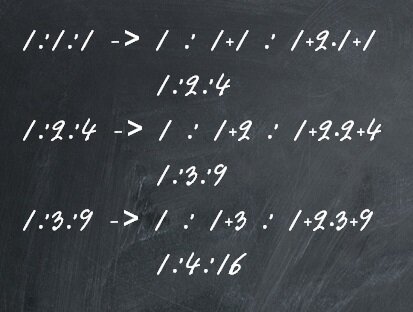 1:1:1 -> 1 : 1+1 : 1+2·1+1
1:2:4
1:2:4 -> 1 : 1+2 : 1+2·2+4
1:3:9
1:3:9 -> 1 : 1+3 : 1+2·3+9
1:4:16